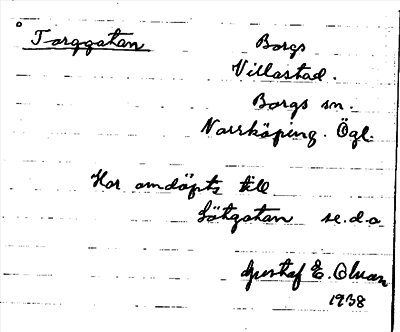 Torggatan Borgs
Villastad.
Borgs sn.
Norrköping. Ögl.
Har omdöpts till
Lötgatan se. d. o
Gustaf E. Olsson
1938